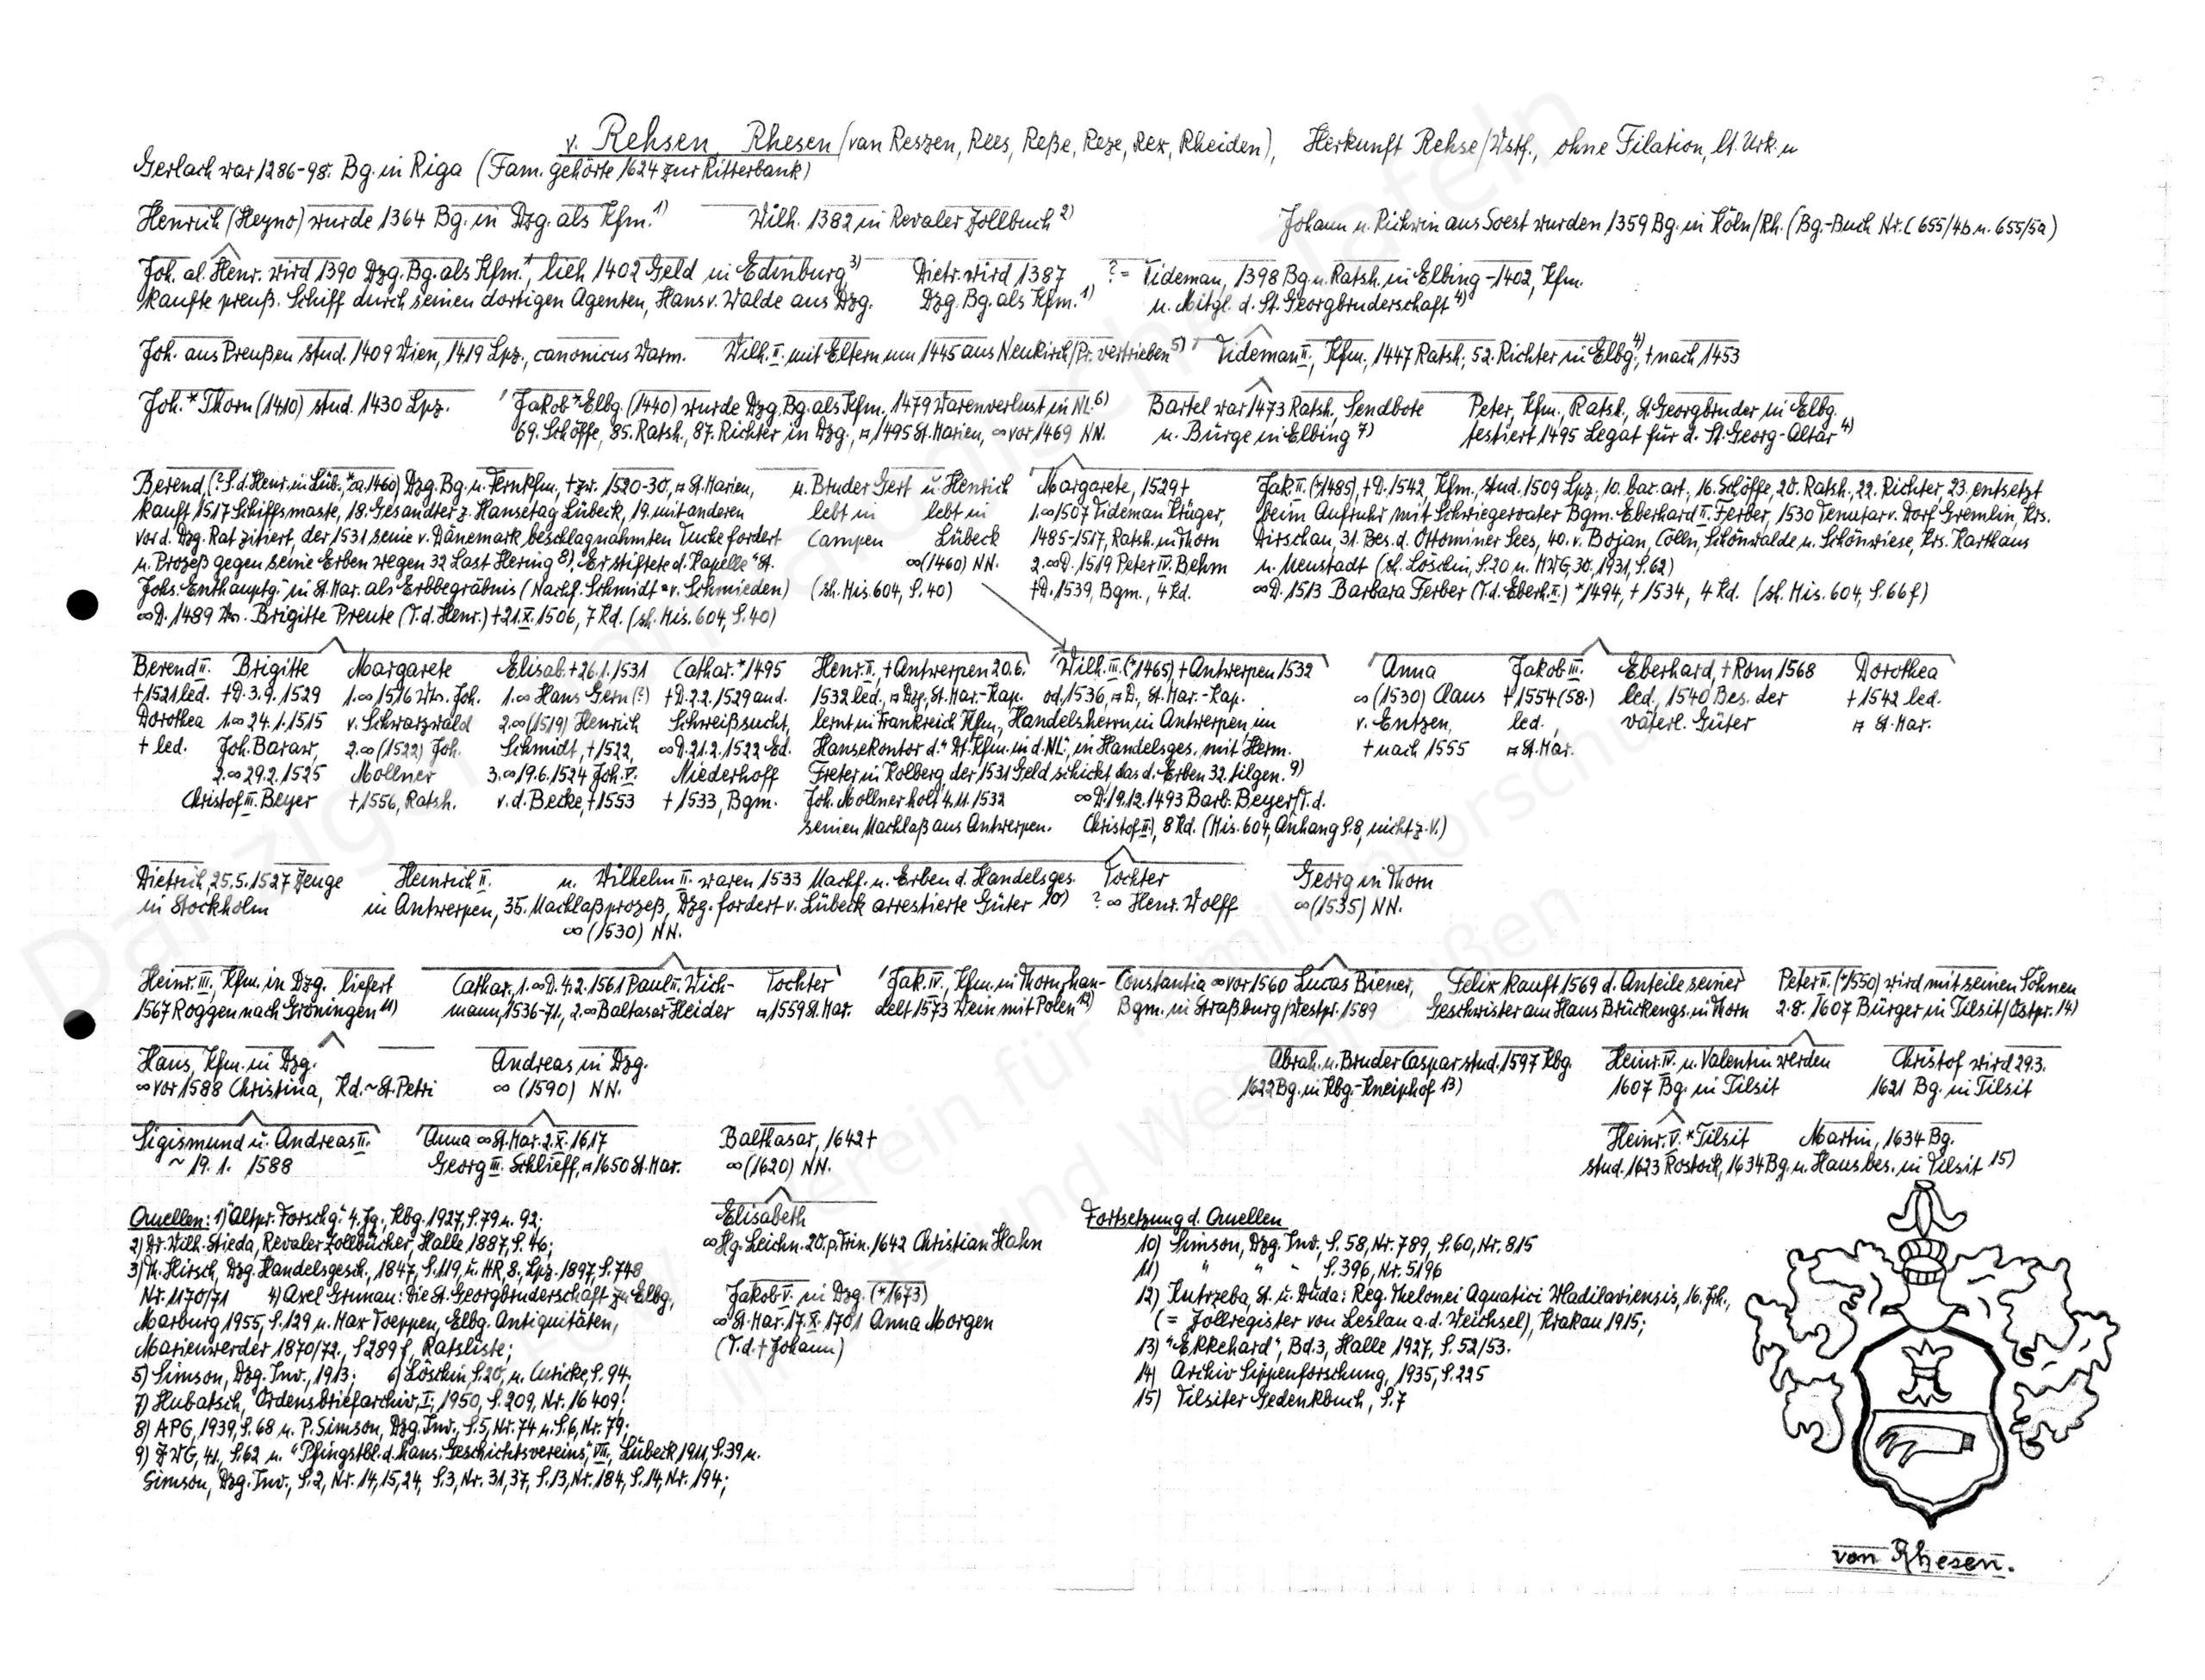 v. Rehsen, Rhesen (van Reszen, Rees, Reße, Reze, Rex, Rheiden), Herkunft Rehse/Wstf., ohne Filation, lt. Urk. u
Gerlach war 1286-98. Bg. in Riga (Fam. gehörte 1624 zur Ritterbank)
Henrich (Heyno) wurde 1364 Bg. in Dzg. als Kfm. 1) Wilh. 1382 in Revaler Zollbuch 2) Johann u. Richwin aus Soest wurden 1359 Bg. in Köln/Rh. (Bg.-Buch Nr. C 655/4b u. 655/5a)
Joh. al. Henr. wird 1390 Dzg. Bg. als Kfm. 1, lieh 1402 Geld in Edinburg 3) Dietr. wird 1387 ?= Tideman, 1398 Bg. u. Ratsh. in Elbing -1402, Kfm.
kaufte preuß. Schiff durch seinen dortigen Agenten, Hans v. Walde aus Dzg. Dzg. Bg. als Kfm. 1) u. Mitgl. d. St. Georgbruderschaft 4)
Joh. aus Preußen stud. 1409 Wien, 1419 Lpz., canonicus Warm. Wilh. II. mit Eltern um 1445 aus Neukirch/Pr. vertrieben 5) Tideman II., Kfm., 1447 Ratsh., 52. Richter in Elbg. 4), + nach 1453
Joh. * Thorn (1410) stud. 1430 Lpz. Jakob * Elbg. (1440) wurde Dzg. Bg. als Kfm., 1479 Warenverlust in NL. 6) Bartel war 1473 Ratsh., Sendbote Peter, Kfm., Ratsh., St. Georgbruder in Elbg.
69. Schöffe, 85. Ratsh., 87. Richter in Dzg., ¤ 1495 St. Marien, ∞ vor 1469 NN. u. Bürge in Elbing 7) testiert 1495 Legat für d. St. Georg-Altar 4)
Berend, (? S. d. Henr. in Lüb., * ca. 1460) Dzg. Bg. u. Fernkfm., + zw. 1520-30, ¤ St. Marien, u. Bruder Gert u. Henrich Margarete, 1529 + Jak. II. (*1485), + D. 1542, Kfm., stud. 1509 Lpz., 10. bac. art., 16. Schöffe, 20. Ratsh., 22. Richter, 23. entsetzt
kauft 1517 Schiffsmaste, 18. Gesandter z. Hansetag Lübeck, 19. mit anderen lebt in lebt in 1. ∞ 1507 Tideman Krüger, beim Aufruhr mit Schwiegervater Bgm. Eberhard II. Ferber, 1530 Tenutar v. Dorf Gremlin, Krs.
vor d. Dzg. Rat zitiert, der 1531 seine v. Dänemark beschlagnahmten Tuche fordert Campen Lübeck 1485-1517, Ratsh. in Thorn Dirschau, 31. Bes. d. Ottominer Sees, 40. v. Bojan, Cölln, Schönwalde u. Schönwiese, Krs. Karthaus
u. Prozeß gegen seine Erben wegen 32 Last Hering 8). Er stiftete d. Kapelle "St. ∞ (1460) NN. 2. ∞ D. 1519 Peter IV. Behm u. Neustadt (sh. Löschin, S. 20 u. MWG, 30, 1931, S. 62)
Johs. Enthauptg." in St. Mar. als Erbbegräbnis (Nachf. Schmidt = v. Schmieden) (sh. Mis. 604, S. 40) + D. 1539, Bgm., 4 Kd. ∞ D. 1513 Barbara Ferber (T. d. Eberh. II.) * 1494, + 1534, 4 Kd. (sh. Mis. 604, S. 66 f)
∞ D. 1489 Ww. Brigitte Preute (T. d. Henr.) + 21. X. 1506, 7 Kd. (sh. Mis. 604, S. 40)
Berend II. Brigitte Margarete Elisab. + 26.1.1531 Cathar. * 1495 Henr. II., + Antwerpen 20.6. Wilh. III. (*1465), + Antwerpen 1532 Anna Jakob III. Eberhard, + Rom 1568 Dorothea
+ 1521 led. + D. 3.9.1529 1. ∞ 1516 Ww. Joh. 1. ∞ Hans Gern (?) + D. 2.2.1529 and. 1532 led., ¤ Dzg., St. Mar.-Kap. od. 1536, ¤ D., St. Mar.-Kap. ∞ (1530) Claus + 1554 (58.) led., 1540 Bes. der + 1542 led.
Dorothea 1. ∞ 24.1.1515 v. Schwarzwald 2. ∞ (1519) Henrich Schweißsucht, lernt in Frankreich Kfm., Handelsherrn in Antwerpen, im v. Entzen, led., väterl. Güter ¤ St. Mar.
+ led. Joh. Baraw, 2. ∞ (1522) Joh. Schmidt, + 1522, ∞ D. 21.2.1522 Ed. Hansekontor d. "Dt. Kfm. in d. NL", in Handelsges. mit Herm. + nach 1555 ¤ St. Mar.
2. ∞ 29.2.1525 Mollner 3. ∞ 19.6.1524 Joh. V. Niederhoff Freter in Kolberg, der 1531 Geld schickt, das d. Erben 32. tilgen. 9)
Christof III. Beyer + 1556, Ratsh. v. d. Becke, + 1553 + 1533, Bgm. Joh. Mollner holt 4.11.1532 ∞ D. 19.12.1493 Barb. Beyer (T. d.
seinen Nachlaß aus Antwerpen. Christof II.), 8 Kd. (Mis. 604, Anhang S. 8, nicht z. V.)
Dietrich, 25.5.1527 Zeuge Heinrich II. u. Wilhelm II. waren 1533 Nachf. u. Erben d. Handelsges. Tochter Georg in Thorn
in Stockholm in Antwerpen, 35. Nachlaßprozeß, Dzg. fordert v. Lübeck arrestierte Güter 10) ? ∞ Henr. Wolff ∞ (1535) NN.
∞ (1530) NN.
Heinr. III., Kfm. in Dzg. liefert Cathar. 1. ∞ D. 4.2.1561 Paul II. Wich- Tochter Jak. IV., Kfm. in Thorn, han- Constantia ∞ vor 1560 Lucas Biener, Felix kauft 1569 d. Anteile seiner Peter II. (*1550) wird mit seinen Söhnen
1567 Roggen nach Groningen 11) mann, 1536-71, 2. ∞ Baltasar Heider ¤ 1559 St. Mar. delt 1573 Wein mit Polen 12) Bgm. in Straßburg/Westpr. 1589 Geschwister am Haus Brückengs. in Thorn 2.8.1607 Bürger in Tilsit/Ostpr. 14)
Hans, Kfm. in Dzg. Andreas in Dzg. Abrah. u. Bruder Caspar stud. 1597 Kbg. Heinr. IV. u. Valentin werden Christof wird 29.3.
∞ vor 1588 Christina, Kd. ~ St. Petri ∞ (1590) NN. 1622 Bg. in Kbg.-Kneiphof 13) 1607 Bg. in Tilsit 1621 Bg. in Tilsit
Sigismund u. Andreas II. Anna ∞ St. Mar. 2. X. 1617 Balthasar, 1642 + Heinr. V. * Tilsit Martin, 1634 Bg.
~ 19.1. 1588 Georg III. Schlieff, ¤ 1650 St. Mar. ∞ (1620) NN. stud. 1623 Rostock, 1634 Bg. u. Hausbes. in Tilsit 15)
Elisabeth
∞ Hg. Leichn. 20. p. Trin. 1642 Christian Hahn
Jakob V. in Dzg. (*1673)
∞ St. Mar. 17. X. 1701 Anna Morgen
(T. d. + Johann)
Quellen: 1) "Altpr. Forschg." 4. Jg., Kbg. 1927, S. 79 u. 92;
2) Dr. Wilh. Stieda, Revaler Zollbücher, Halle 1887, S. 46;
3) Th. Hirsch, Dzg. Handelsgesch., 1847, S. 119, u. HR, 8., Lpz. 1897, S. 748
Nr. 1170/71 4) Axel Grunau: Die St. Georgbruderschaft zu Elbg,
Marburg 1955, S. 129 u. Max Toeppen, Elbg. Antiquitäten,
Marienwerder 1870/72., S 289 f, Ratsliste;
5) Simson, Dzg. Inv., 1913; 6) Löschin S. 20, u. Curicke, S. 94.
7) Hubatsch, Ordensbriefarchiv, I, 1950, S. 209, Nr. 16 409;
8) APG, 1939, S. 68 u. P. Simson, Dzg. Inv., S. 5, Nr. 74 u. S. 6, Nr. 79;
9) ZWG, 41, S. 62 u. "Pfingstbl. d. hans. Geschichtsvereins", VII., Lübeck 1911, S. 39 u.
Simson, Dzg. Inv., S. 2, Nr. 14, 15, 24, S. 3, Nr. 31, 37, S. 13, Nr. 184, S. 14, Nr. 194;
Fortsetzung d. Quellen
10) Simson, Dzg. Inv., S. 58, Nr. 789, S. 60, Nr. 815
11) " " " S. 396, Nr. 5196
12) Kutrzeba, St. u. Duda: Reg. Thelonei Aquatici Wladilaviensis, 16. Jh.,
(= Zollregister von Leslau a. d. Weichsel), Krakau 1915;
13) "Ekkehard", Bd. 3, Halle 1927, S. 52/53.
14) Archiv Sippenforschung, 1935, S. 225
15) Tilsiter Gedenkbuch, S. 7
von Rhesen.